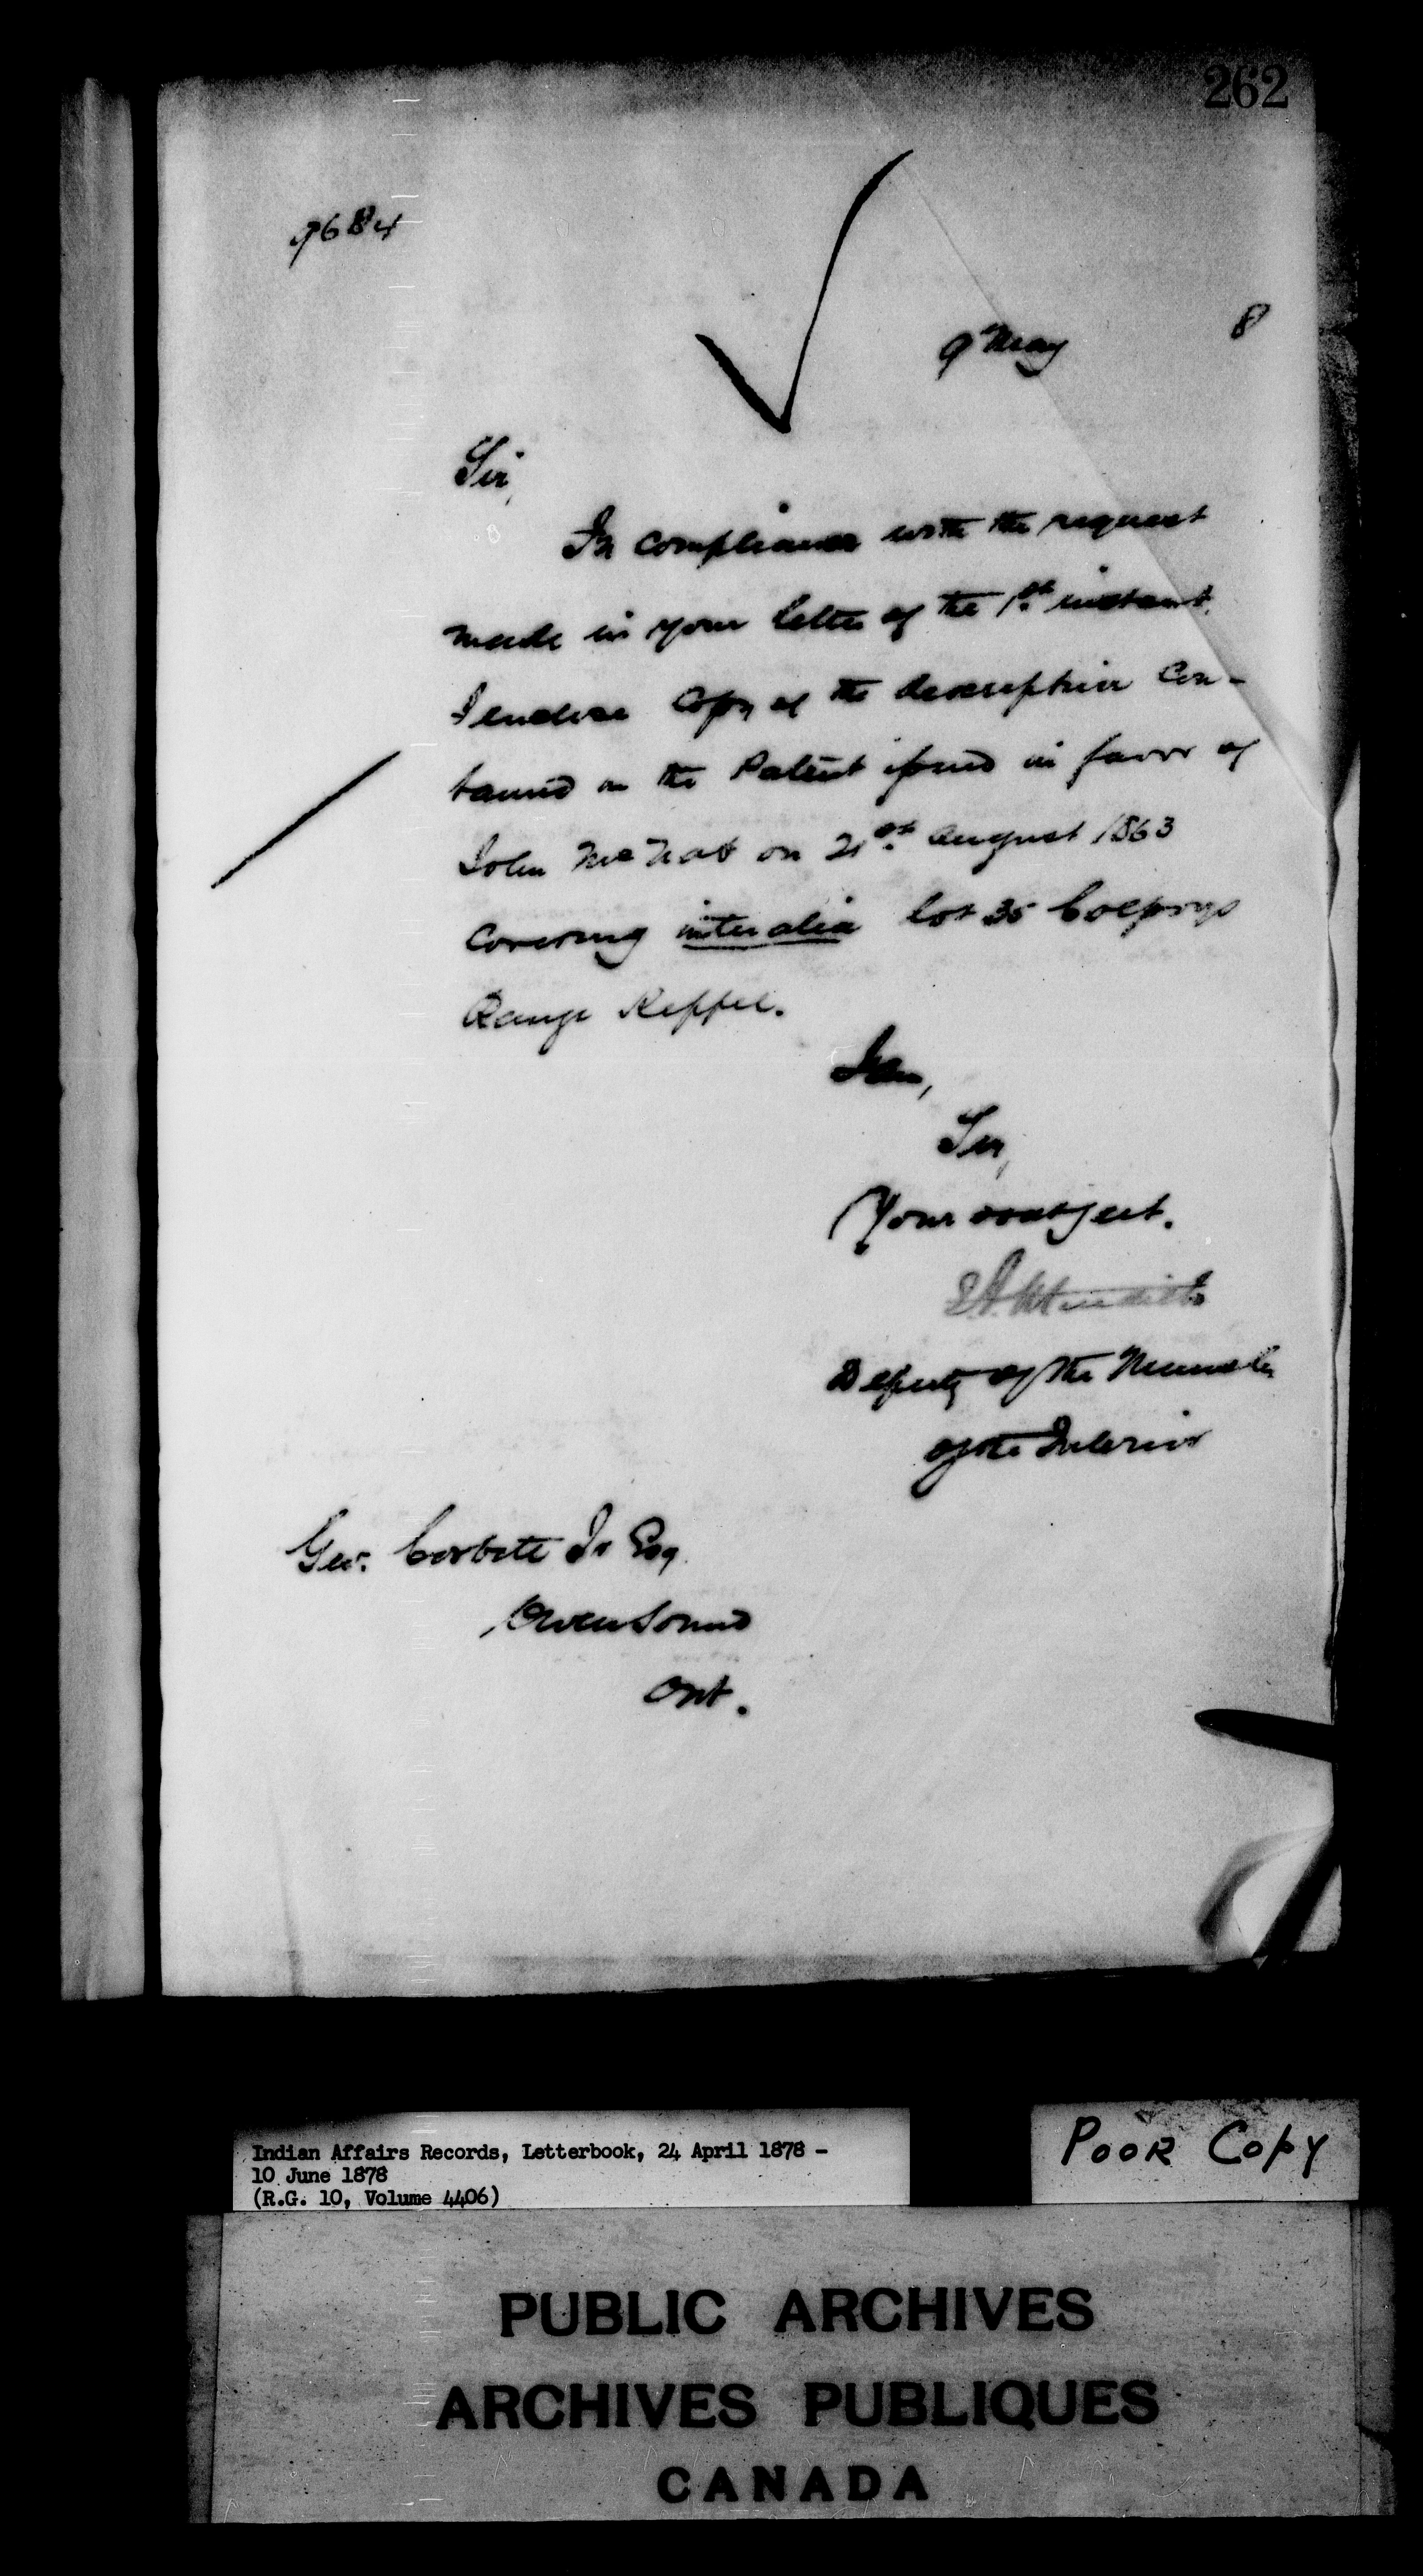 262
9684
9 May 8
Sir,
In compliance with the request
made in your letter of the 1st. instant,
I enclose Copy of the description Con-
tained in the Patent issued in favor of
John McNab on 21st. August 1863
Covering inter alia lot 35 Colpoys
Range Keppel.
I am,
Sir,
Your obedt. servt.
E A Meredith
Deputy of the Minister
of the Interior
Geo. Corbett Jr Esq.
Owen Sound
Ont.
Indian Affairs Records, Letterbook, 24 April 1878 -
10 June 1878
(R.G. 10, Volume 4406)
Poor Copy
PUBLIC ARCHIVES
ARCHIVES PUBLIQUES
CANADA